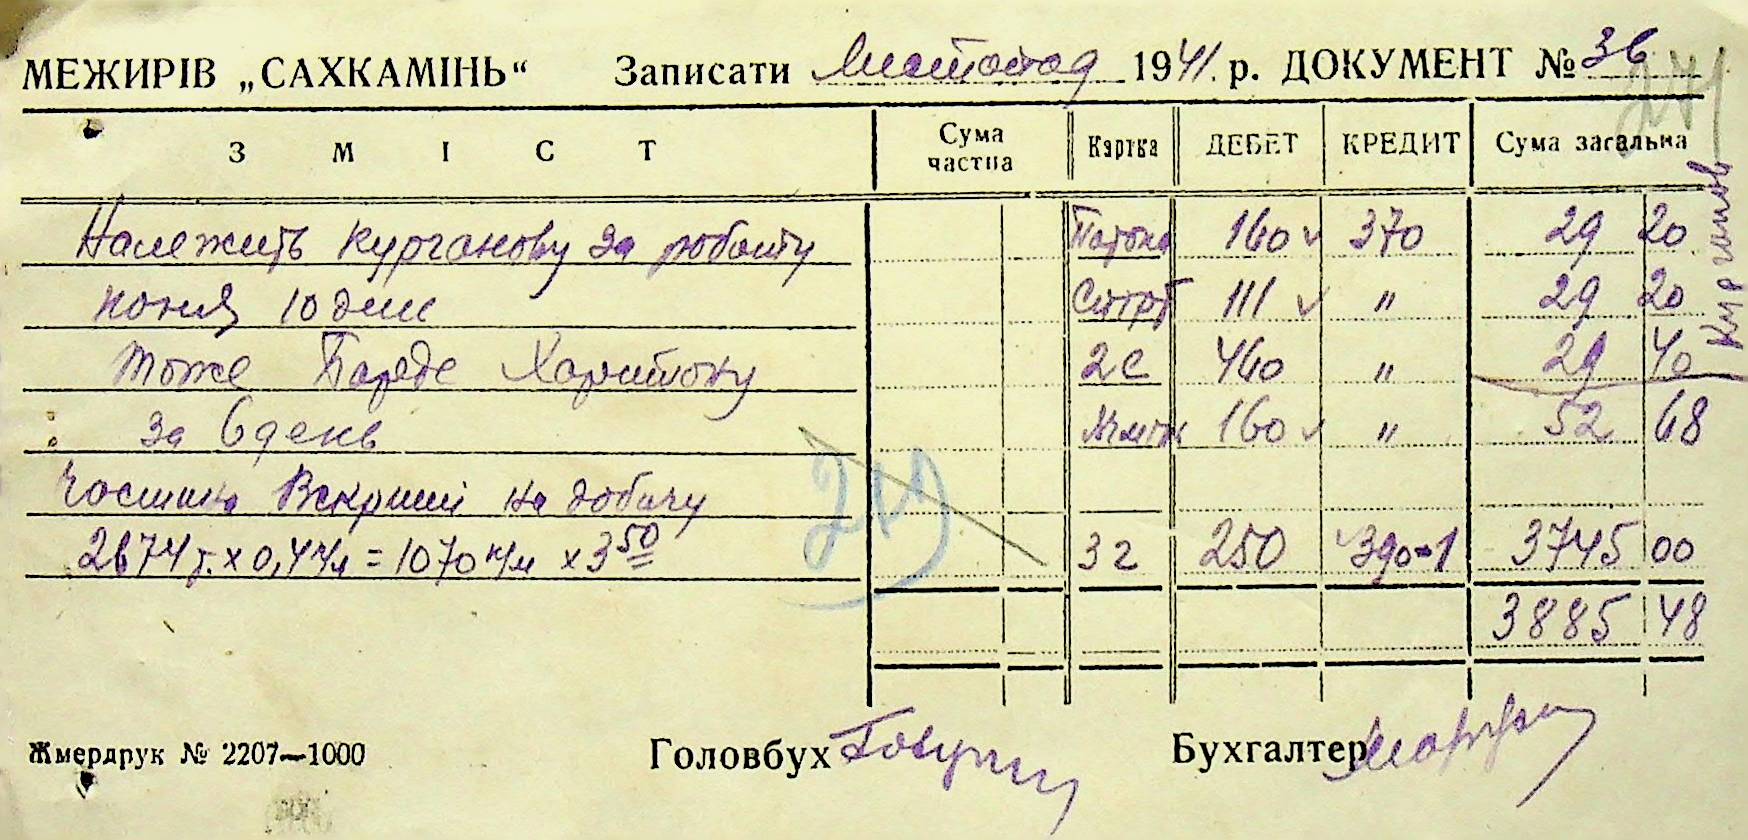 МЕЖИРІВ „САХКАМІНЬ“ Записати Листопад 1941 р. ДОКУМЕНТ № 36
274
ЗМІСТ Сума частна Картка ДЕБЕТ КРЕДИТ Сума загальна
Належить Курганову за роботу 160 370 29 20
коня 10 днів 111 " 29 20
тоже Харитону 2с 460 " 29 40
за 6 день 160 " 52 68
частина Вскриші на добичу
2674 т. x 0,4 = 1070 x 3 50 3г 250 390-1 3745 00
3885 48
Головбух
Бухгалтер
Жмердрук № 2207—1000